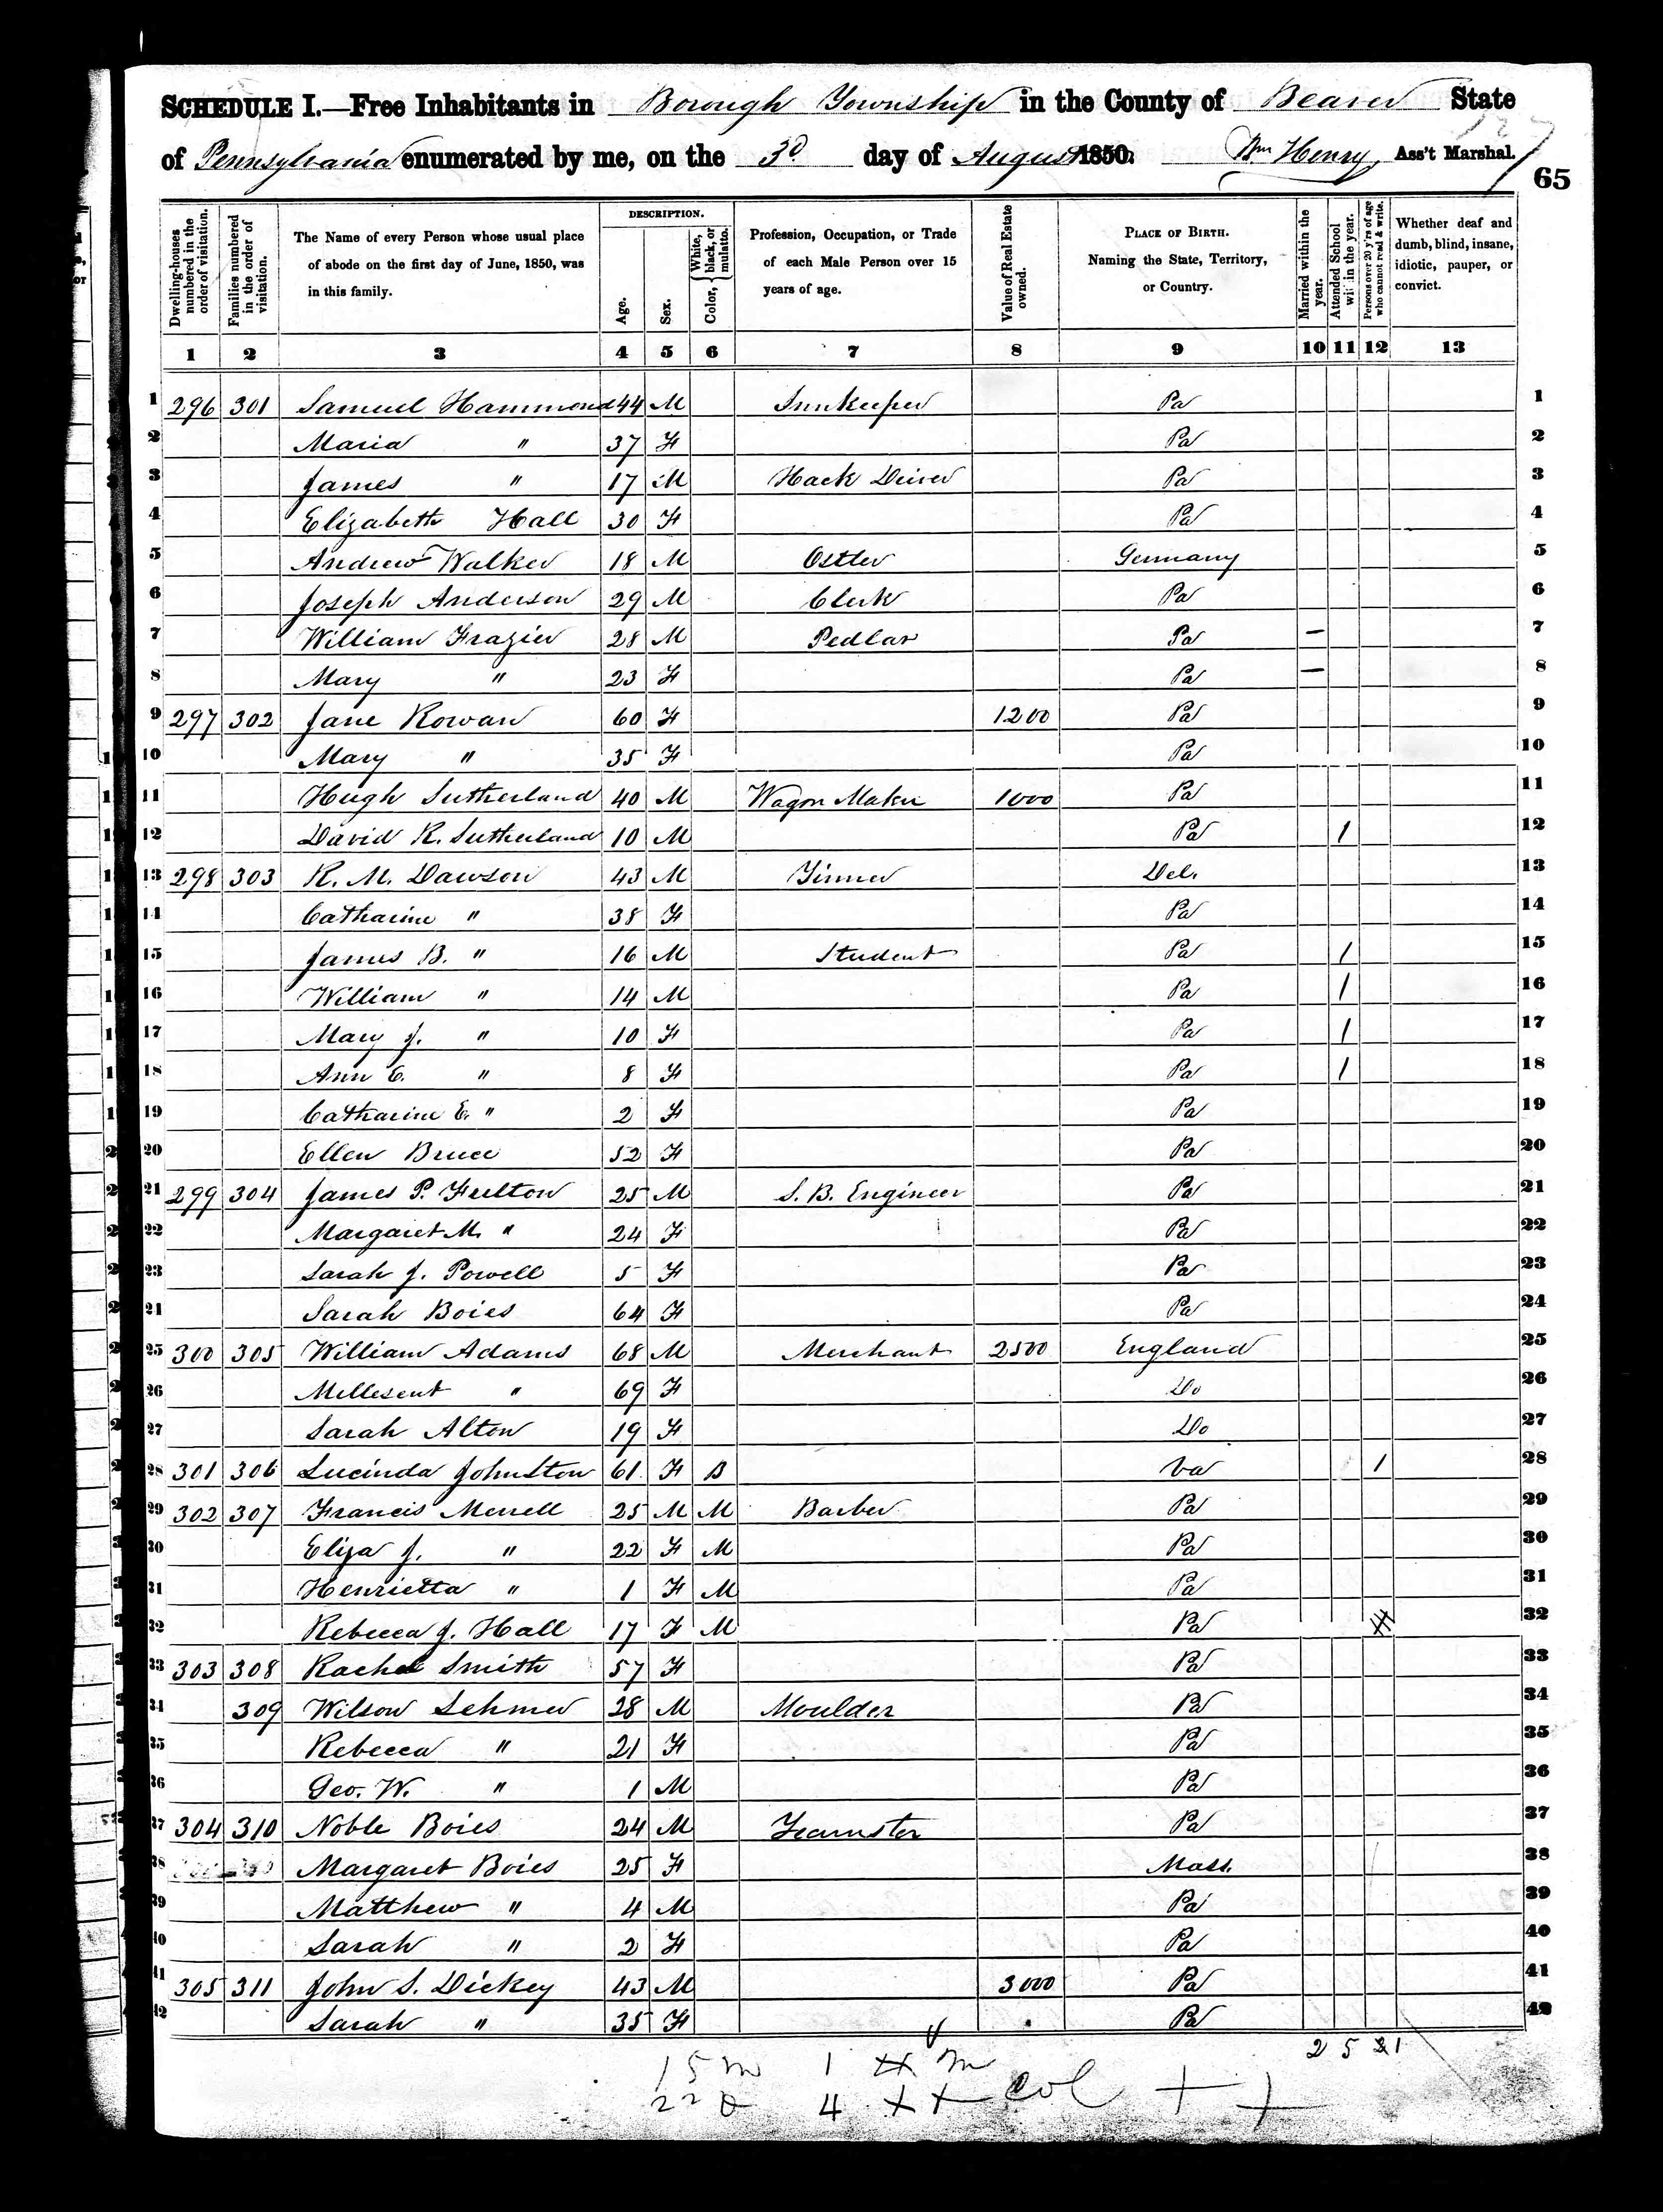 SCHEDULE I.—Free Inhabitants in Borough Township in the County of Beaver State
of Pennsylvania enumerated by me, on the 3d day of August 1850. Wm Henry, Ass't Marshal.
65
Dwelling-houses numbered in the order of visitation. Families numbered in the order of visitation. The Name of every Person whose usual place of abode on the first day of June, 1850, was in this family. DESCRIPTION. Age. Sex. Color, { White, black, or mulatto. Profession, Occupation, or Trade of each Male Person over 15 years of age. Value of Real Estate owned. PLACE OF BIRTH. Naming the State, Territory, or Country. Married within the year. Attended School within the year. Persons over 20 y'rs of age who cannot read & write. Whether deaf and dumb, blind, insane, idiotic, pauper, or convict.
1 2 3 4 5 6 7 8 9 10 11 12 13
1 296 301 Samuel Hammond 44 M Innkeeper Pa 1
2 Maria " 37 F Pa 2
3 James " 17 M Hack Driver Pa 3
4 Elizabeth Hall 30 F Pa 4
5 Andrew Walker 18 M Ostler Germany 5
6 Joseph Anderson 29 M Clerk Pa 6
7 William Frazier 28 M Pedlar Pa – 7
8 Mary " 23 F Pa – 8
9 297 302 Jane Rowan 60 F 1200 Pa 9
10 Mary " 35 F Pa 10
11 Hugh Sutherland 40 M Wagon Maker 1000 Pa 11
12 David R. Sutherland 10 M Pa 1 12
13 298 303 R. M. Dawson 43 M Tinner Del. 13
14 Catharine " 38 F Pa 14
15 James B. " 16 M Student Pa 1 15
16 William " 14 M Pa 1 16
17 Mary J. " 10 F Pa 1 17
18 Ann E. " 8 F Pa 1 18
19 Catharine E. " 2 F Pa 19
20 Ellen Bruce 52 F Pa 20
21 299 304 James P. Fulton 25 M S. B. Engineer Pa 21
22 Margaret M. " 24 F Pa 22
23 Sarah J. Powell 5 F Pa 23
24 Sarah Boies 64 F Pa 24
25 300 305 William Adams 68 M Merchant 2500 England 25
26 Mellesent " 69 F Do 26
27 Sarah Alton 19 F Do 27
28 301 306 Lucinda Johnston 61 F B Va 1 28
29 302 307 Francis Merrell 25 M M Barber Pa 29
30 Eliza J. " 22 F M Pa 30
31 Henrietta " 1 F M Pa 31
32 Rebecca J. Hall 17 F M Pa 32
33 303 308 Rachel Smith 57 F Pa 33
34 309 Wilson Lehmer 28 M Moulder Pa 34
35 Rebecca " 21 F Pa 35
36 Geo. W. " 1 M Pa 36
37 304 310 Noble Boies 24 M Teamster Pa 37
38 Margaret Boies 25 F Mass. 38
39 Matthew " 4 M Pa 39
40 Sarah " 2 F Pa 40
41 305 311 John S. Dickey 43 M 3000 Pa 41
42 Sarah " 35 F Pa 42
2 5 1
15 m 1 m
22 4 col